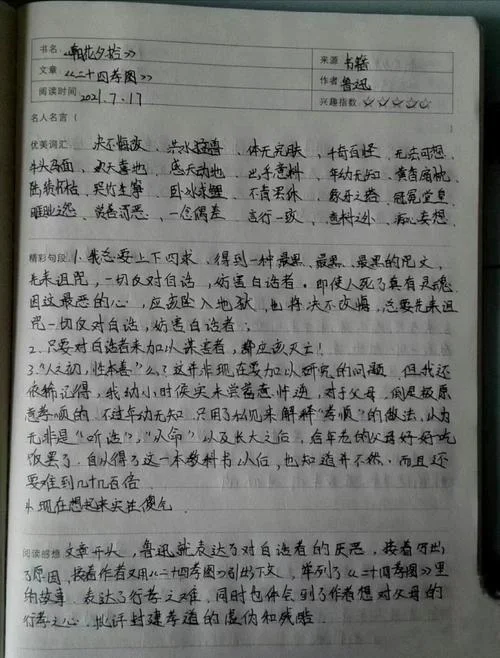 书名：《朝花夕拾》 来源 书籍
文章：《二十四孝图》 作者 鲁迅
阅读时间：2021.7.17 兴趣指数：☆☆☆☆☆
名人名言（ ）
优美词汇： 决不悔改、洪水猛兽、体无完肤、千奇百怪、无法可想、
牛头马面、欢天喜地、感天动地、出乎意料、年幼无知、黄香扇枕、
陆绩怀桔、哭竹生笋、卧冰求鲤、不肯罢休、冠冕堂皇、
一念偶差、言行一致、意料之外、痴心妄想
精彩句段 1.我总要上下四求，得到一种最黑、最黑、最黑的咒文，
先来诅咒，一切反对白话，妨害白话者。即使人死了真有灵魂，
因这最恶的心，应该坠入地狱，也将决不改悔，总要先来诅
咒一切反对白话，妨害白话者；
2.只要对白话来加以谋害者，都应该灭亡！
3."人之初，性本善"么？这并非现在要加以研究的问题，但我还
依稀记得，我幼小时候实未尝蓄意忤逆，对于父母，倒是极愿
意孝顺的，不过年幼无知，只用了私见来解释"孝顺"的做法，以为
无非是"听话"，"从命"以及长大之后，给年老的父母好好吃
饭罢了。自从得了这一本教科书以后，也知道并不然，而且还
要难到几十几百倍
4.现在想起来实在傻气
阅读感想 文章开头，鲁迅就表达了对白话者的厌恶，接着写出
了原因，接着作者又用《二十四孝图》引出下文，举列了《二十四孝图》里
的故事，表达了行孝之难，同时也体会到了作者想对父母的
行孝之心，批评封建孝道的虚伪和残酷.